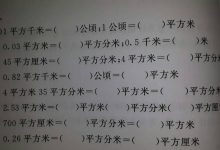 1平方千米=( )公顷;1公顷=( )平方米
0.03平方米=( )平方分米;0.5千米=( )米
45平方厘米=( )平方分米;4平方米=( )平方分米
0.82平方千米=( )公顷=( )平方米
4平方米35平方分米=( )平方米
2.53平方米=( )平方分米=( )平方厘米
700平方厘米=( )平方分米=( )平方米
0.26平方米=( )平方分米=( )平方厘米